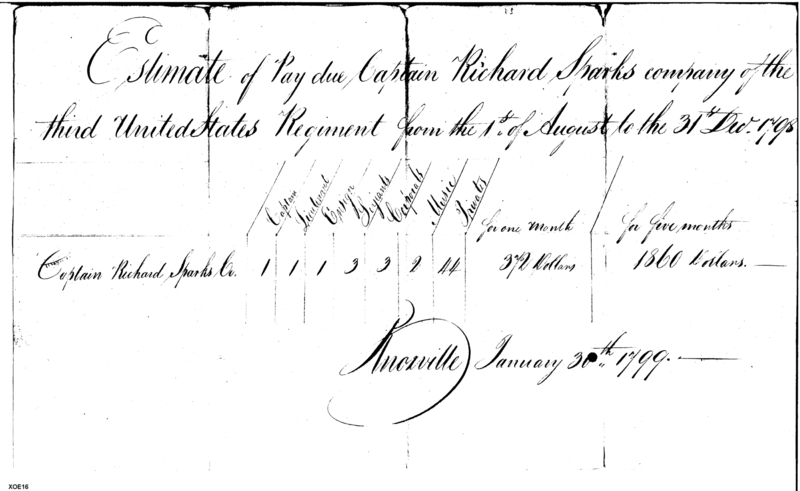 Estimate of Pay due Captain Richard Sparks company of the
third United States Regiment from the 1st. of August to the 31st Decr. 1798
Captain Lieutenant Ensign Serjants Corporals Music Privates for one month for five months
Captain Richard Sparks Co. 1 1 1 3 3 2 44 372 Dollars 1860 Dollars.
Knoxville January 30th 1799.
XOE16